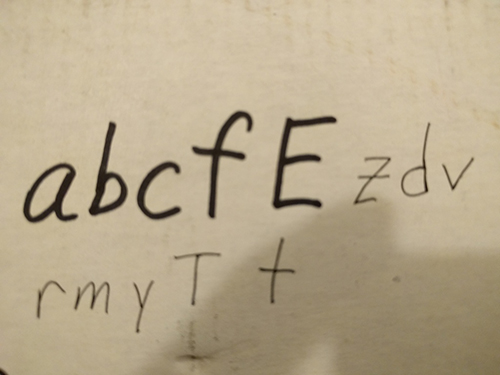 abcfE zdv
rmyTt